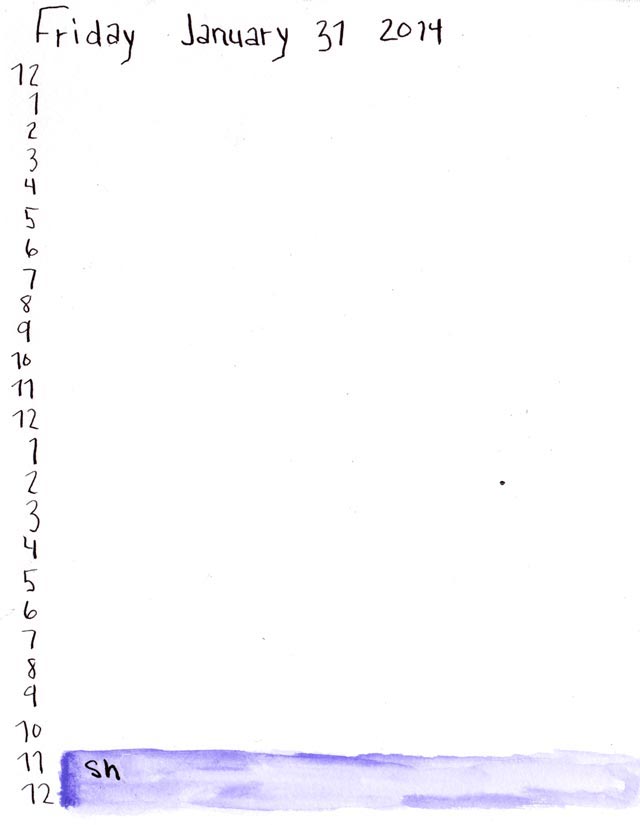 Friday January 31 2014
12
1
2
3
4
5
6
7
8
9
10
11
12
1
2
3
4
5
6
7
8
9
10
11 sh
12